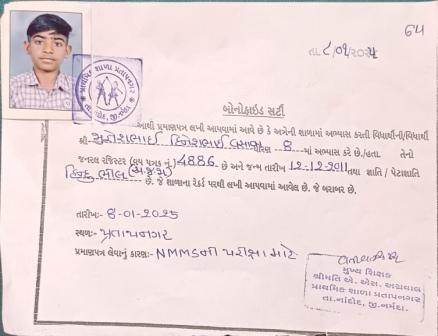 64
તા. ૮/૦૧/૨૦૨૫
પ્રાથમિક શાળા પ્રતાપનગર
તા.નાંદોદ, જી.નર્મદા
બોનોફાઇડ સર્ટી
આથી પ્રમાણપત્ર લખી આપવામાં આવે છે કે અત્રેની શાળામાં અભ્યાસ કરતી વિદ્યાર્થીની/વિદ્યાર્થી
શ્રી હિનેશભાઈ વસાવા ધોરણ 8 માં અભ્યાસ કરે છે./હતા. તેનો
જનરલ રજિસ્ટર (વય પત્રક નં.) 4886 છે અને જન્મ તારીખ 12-12-2011 તથા જ્ઞાતિ / પેટાજ્ઞાતિ
હિન્દુ ભીલ (અ.જ.જા) છે. જે શાળાના રેકર્ડ પરથી લખી આપવામાં આવેલ છે. જે બરાબર છે.
તારીખ:- 8-01-2025
સ્થળ:- પ્રતાપનગર
પ્રમાણપત્ર લેવાનું કારણ:- NMMSની પરીક્ષા માટે
મુખ્ય શિક્ષક
શ્રીમતિ એ. એસ. અગ્રવાલ
પ્રાથમિક શાળા પ્રતાપનગર
તા.નાંદોદ, જી.નર્મદા.